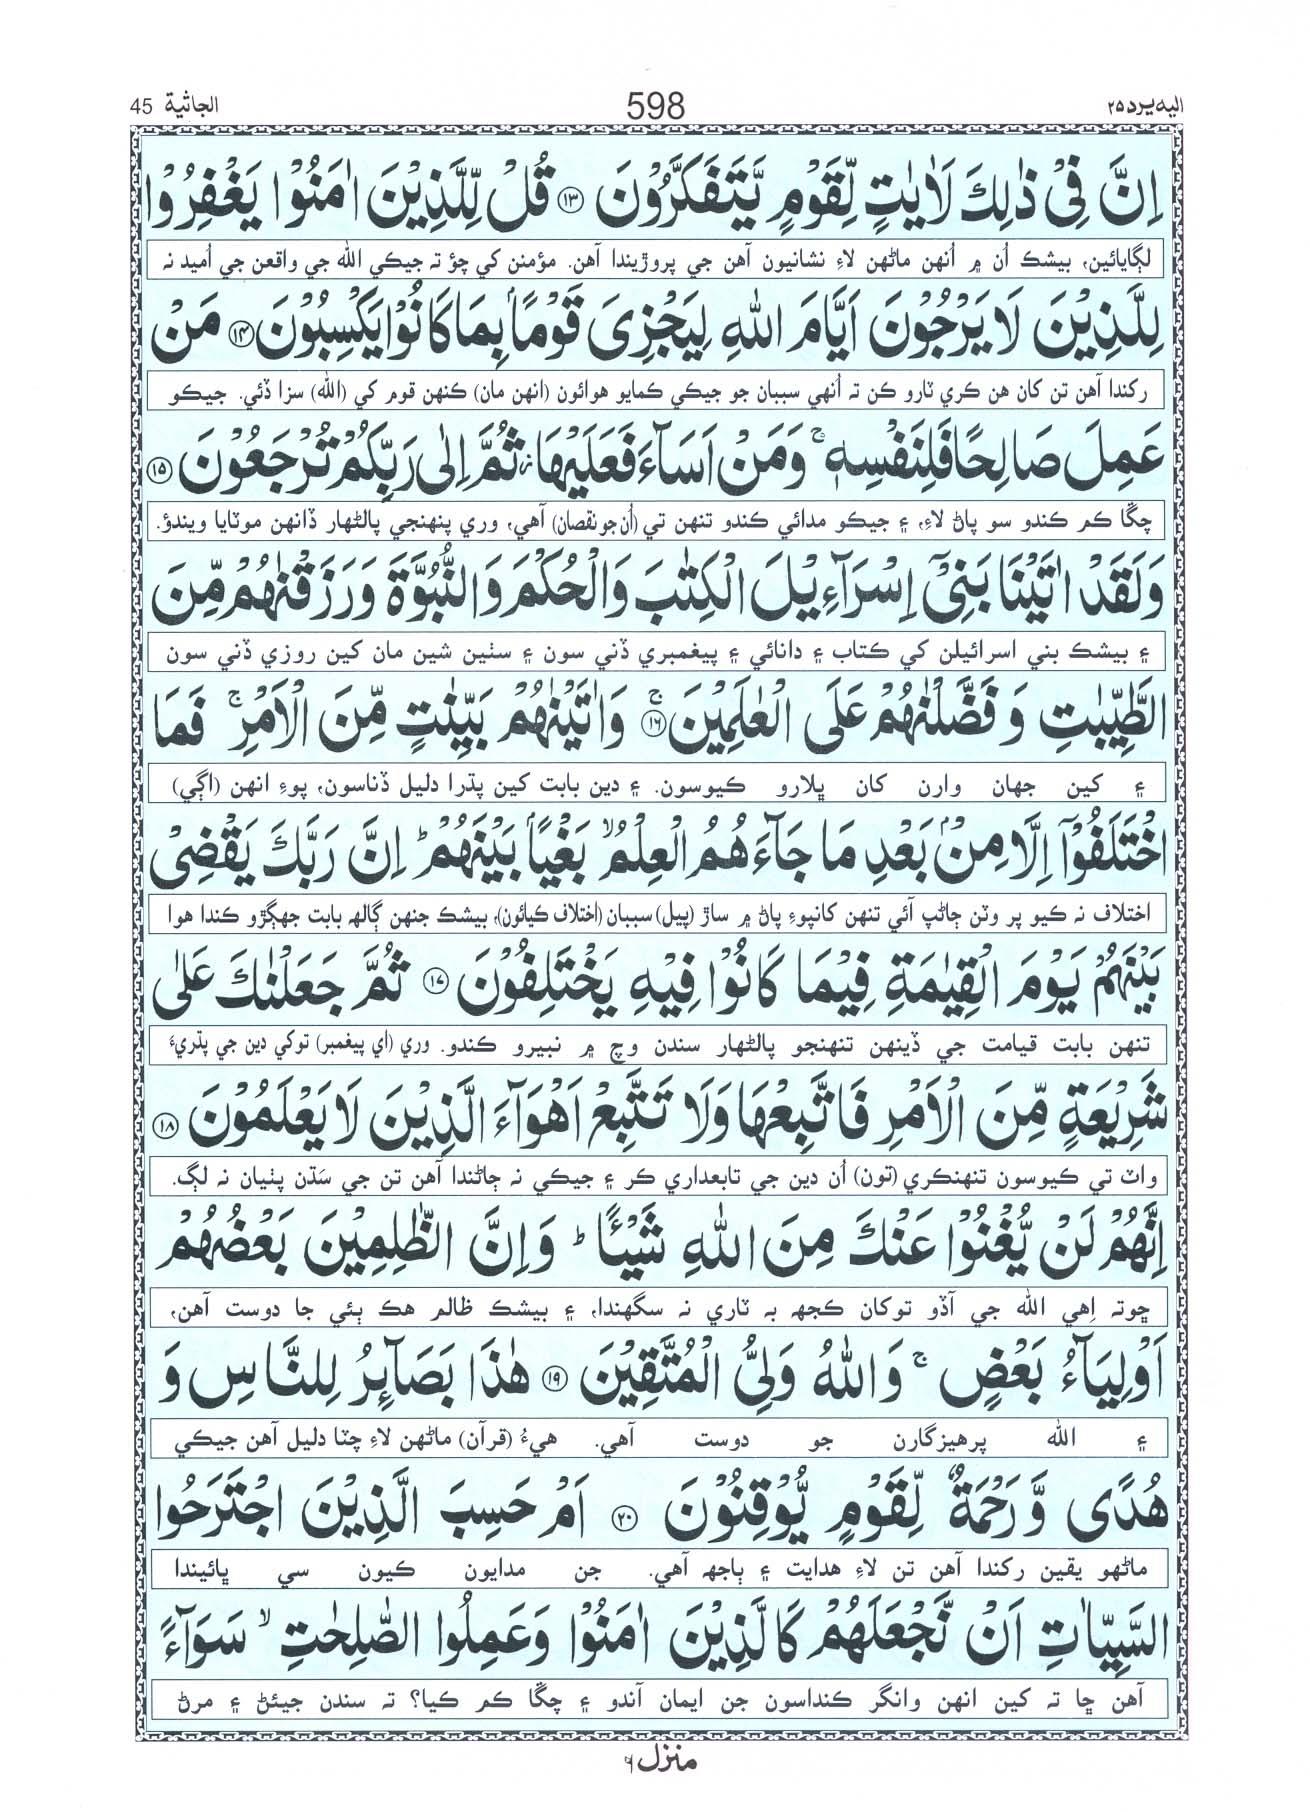 اليه يرد ٢٥
598
الجاثية 45
اِنَّ فِىْ ذٰلِكَ لَاٰيٰتٍ لِّقَوْمٍ يَّتَفَكَّرُوْنَ ۝١٣ قُلْ لِّلَّذِيْنَ اٰمَنُوْا يَغْفِرُوْا
لڳايائين، بيشڪ اُن ۾ اُنهن ماڻهن لاءِ نشانيون آهن جي پروڙيندا آهن. مؤمنن کي چؤ تہ جيڪي الله جي واقعن جي اُميد نہ
لِلَّذِيْنَ لَا يَرْجُوْنَ اَيَّامَ اللّٰهِ لِيَجْزِىَ قَوْمًاۢ بِمَا كَانُوْا يَكْسِبُوْنَ ۝١٤ مَنْ
رکندا آهن تن کان هن ڪري ٽارو ڪن تہ اُنهي سببان جو جيڪي ڪمايو هوائون (انهن مان) ڪنهن قوم کي (الله) سزا ڏئي. جيڪو
عَمِلَ صَالِحًا فَلِنَفْسِهٖ ۚ وَمَنْ اَسَآءَ فَعَلَيْهَا ۡ ثُمَّ اِلٰى رَبِّكُمْ تُرْجَعُوْنَ ۝١٥
چڱا ڪم ڪندو سو پاڻ لاءِ، ۽ جيڪو مدائي ڪندو تنهن تي (اُن جو نقصان) آهي، وري پنهنجي پالڻهار ڏانهن موٽايا ويندؤ.
وَلَقَدْ اٰتَيْنَا بَنِىْٓ اِسْرَآءِيْلَ الْكِتٰبَ وَالْحُكْمَ وَالنُّبُوَّةَ وَرَزَقْنٰهُمْ مِّنَ
۽ بيشڪ بني اسرائيلن کي ڪتاب ۽ دانائي ۽ پيغمبري ڏني سون ۽ سٺين شين مان کين روزي ڏني سون
الطَّيِّبٰتِ وَفَضَّلْنٰهُمْ عَلَى الْعٰلَمِيْنَ ۚ ۝١٦ وَاٰتَيْنٰهُمْ بَيِّنٰتٍ مِّنَ الْاَمْرِ ۚ فَمَا
۽ کين جهان وارن کان ڀلارو ڪيوسون. ۽ دين بابت کين پڌرا دليل ڏناسون، پوءِ انهن (اڳي)
اخْتَلَفُوْٓا اِلَّا مِنْۢ بَعْدِ مَا جَآءَهُمُ الْعِلْمُ ۙ بَغْيًاۢ بَيْنَهُمْ ؕ اِنَّ رَبَّكَ يَقْضِىْ
اختلاف نہ ڪيو پر وٽن ڄاڻپ آئي تنهن کانپوءِ پاڻ ۾ ساڙ (پيل) سببان (اختلاف ڪيائون)، بيشڪ جنهن ڳالهہ بابت جهڳڙو ڪندا هوا
بَيْنَهُمْ يَوْمَ الْقِيٰمَةِ فِيْمَا كَانُوْا فِيْهِ يَخْتَلِفُوْنَ ۝١٧ ثُمَّ جَعَلْنٰكَ عَلٰى
تنهن بابت قيامت جي ڏينهن تنهنجو پالڻهار سندن وچ ۾ نبيرو ڪندو. وري (اي پيغمبر) توکي دين جي پڌريءَ
شَرِيْعَةٍ مِّنَ الْاَمْرِ فَاتَّبِعْهَا وَلَا تَتَّبِعْ اَهْوَآءَ الَّذِيْنَ لَا يَعْلَمُوْنَ ۝١٨
واٽ تي ڪيوسون تنهنڪري (تون) اُن دين جي تابعداري ڪر ۽ جيڪي نہ ڄاڻندا آهن تن جي سَڌن پٺيان نہ لڳ.
اِنَّهُمْ لَنْ يُّغْنُوْا عَنْكَ مِنَ اللّٰهِ شَيْـًٔا ؕ وَاِنَّ الظّٰلِمِيْنَ بَعْضُهُمْ
ڇوتہ اِهي الله جي آڏو توکان ڪجهہ بہ ٽاري نہ سگهندا، ۽ بيشڪ ظالم هڪ ٻئي جا دوست آهن،
اَوْلِيَآءُ بَعْضٍ ۚ وَاللّٰهُ وَلِىُّ الْمُتَّقِيْنَ ۝١٩ هٰذَا بَصَآئِرُ لِلنَّاسِ وَ
۽ الله پرهيزگارن جو دوست آهي. هيءُ (قرآن) ماڻهن لاءِ چٽا دليل آهن جيڪي
هُدًى وَّرَحْمَةٌ لِّقَوْمٍ يُّوْقِنُوْنَ ۝٢٠ اَمْ حَسِبَ الَّذِيْنَ اجْتَرَحُوا
ماڻهو يقين رکندا آهن تن لاءِ هدايت ۽ ٻاجهہ آهي. جن مدايون ڪيون سي ڀائيندا
السَّيِّاٰتِ اَنْ نَّجْعَلَهُمْ كَالَّذِيْنَ اٰمَنُوْا وَعَمِلُوا الصّٰلِحٰتِ ۙ سَوَآءً
آهن ڇا تہ کين انهن وانگر ڪنداسون جن ايمان آندو ۽ چڱا ڪم ڪيا؟ تہ سندن جيئڻ ۽ مرڻ
منزل ٦